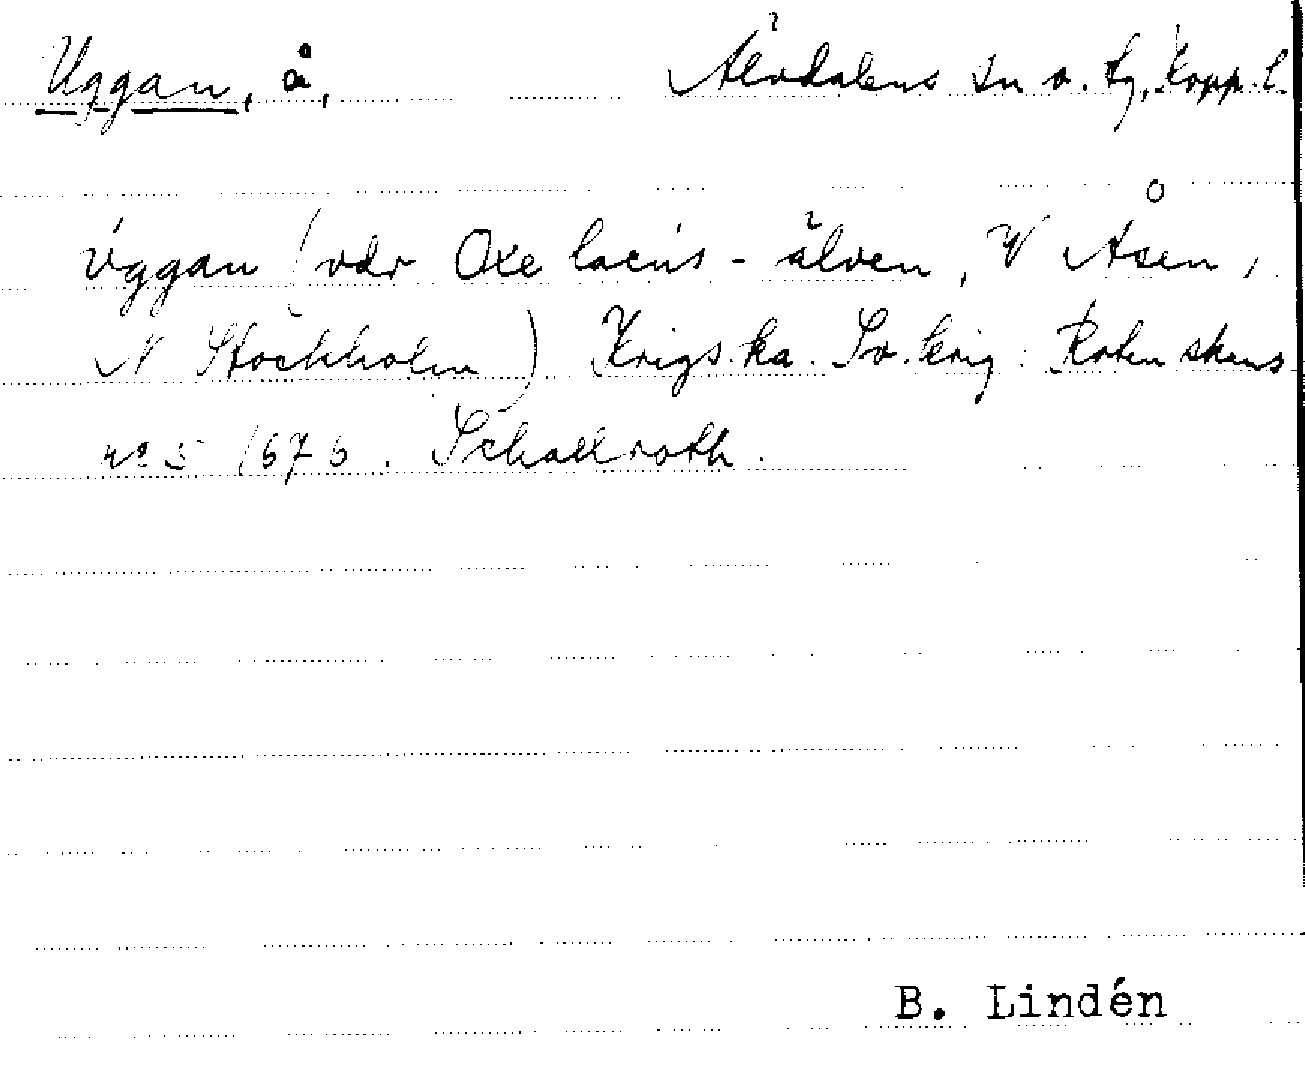 Uggan, å, Älvdalens sn o. tg, Kopp. l.
Uggan (vdr Oxe lacus - älven, V Åsen,
N Stockholm) Krigs.ka. Sv. krig.
nr 5 1676. Schallroth.
B. Lindén